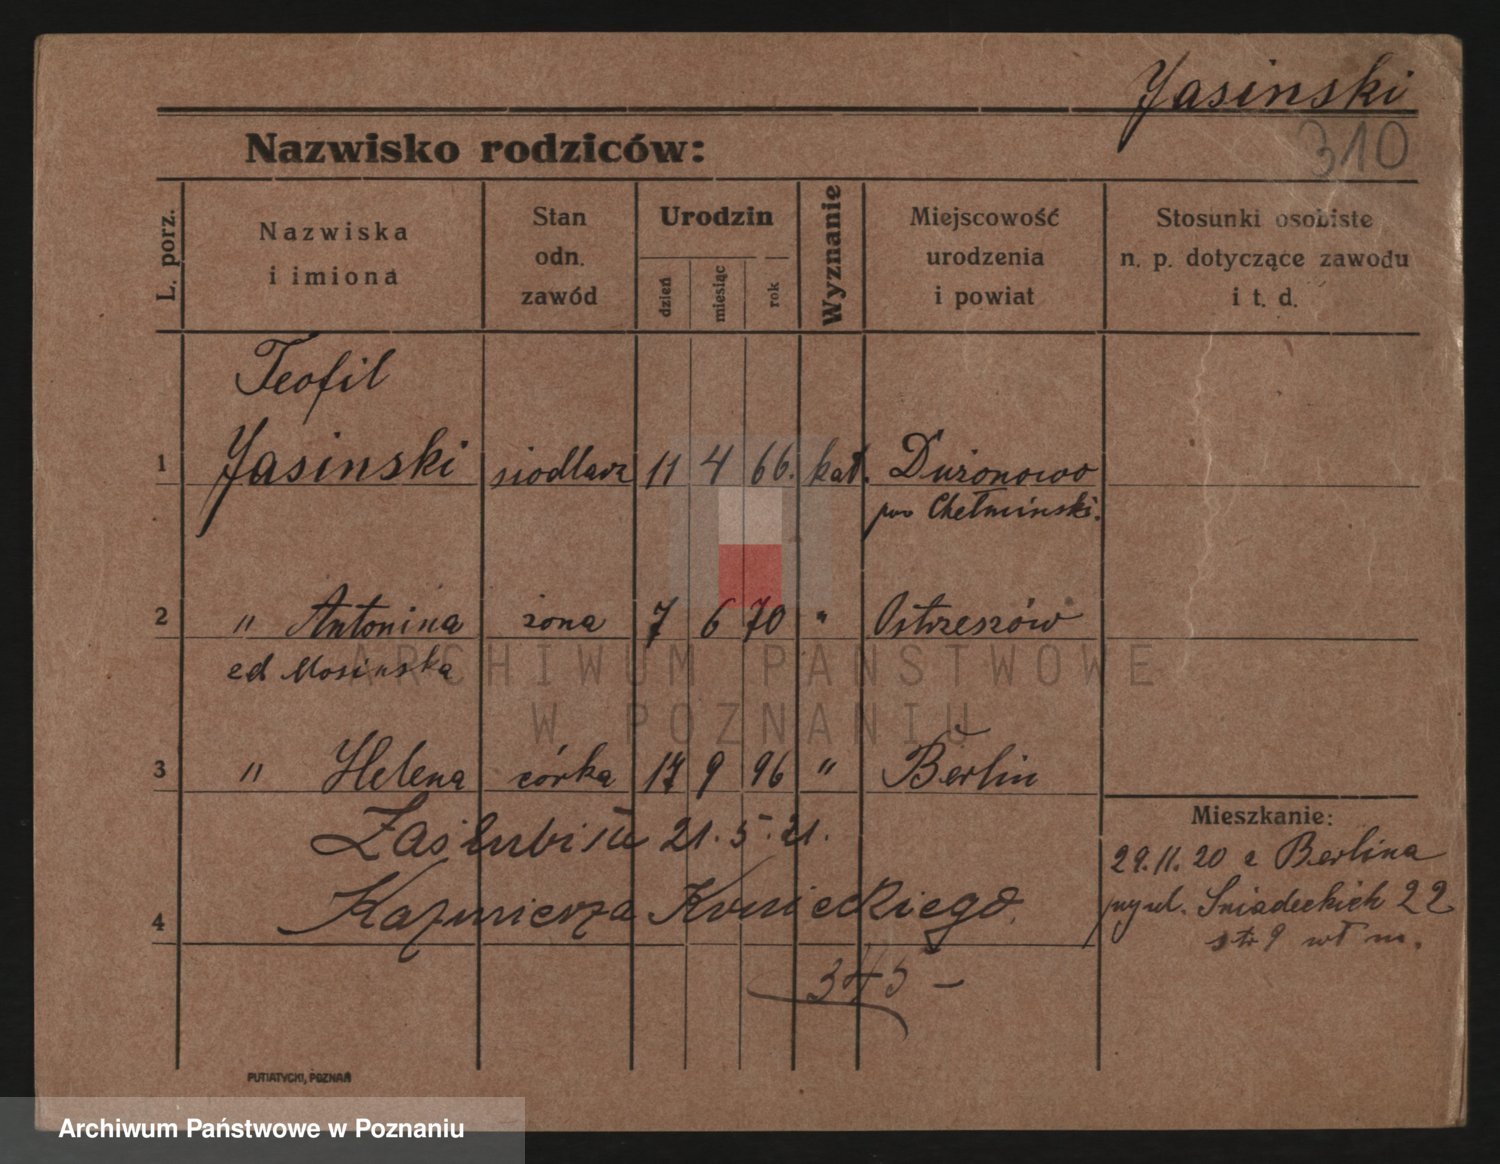 Jasinski
310
Nazwisko rodziców:
L. porz.
Nazwiska
i imiona
Stan
odn.
zawód
Urodzin
dzień
miesiąc
rok
Wyznanie
Miejscowość
urodzenia
i powiat
Stosunki osobiste
n. p. dotyczące zawodu
i t. d.
Teofil
1 Jasinski siodlarz 11 4 66. kat. Dużonowo
pow Chełminski.
2 " Antonina żona 7 6 70 " Ostrzeszów
Mosinska
3 " Helena córka 17 9 96 " Berlin
Zaślubiła 21.5.21.
4 Kazmierza
345 –
Mieszkanie:
29.11.20 z Berlina
Sniadeckich 22
str 9 wł m.
PUTIATYCKI, POZNAŃ
ARCHIWUM PAŃSTWOWE
W POZNANIU
Archiwum Państwowe w Poznaniu